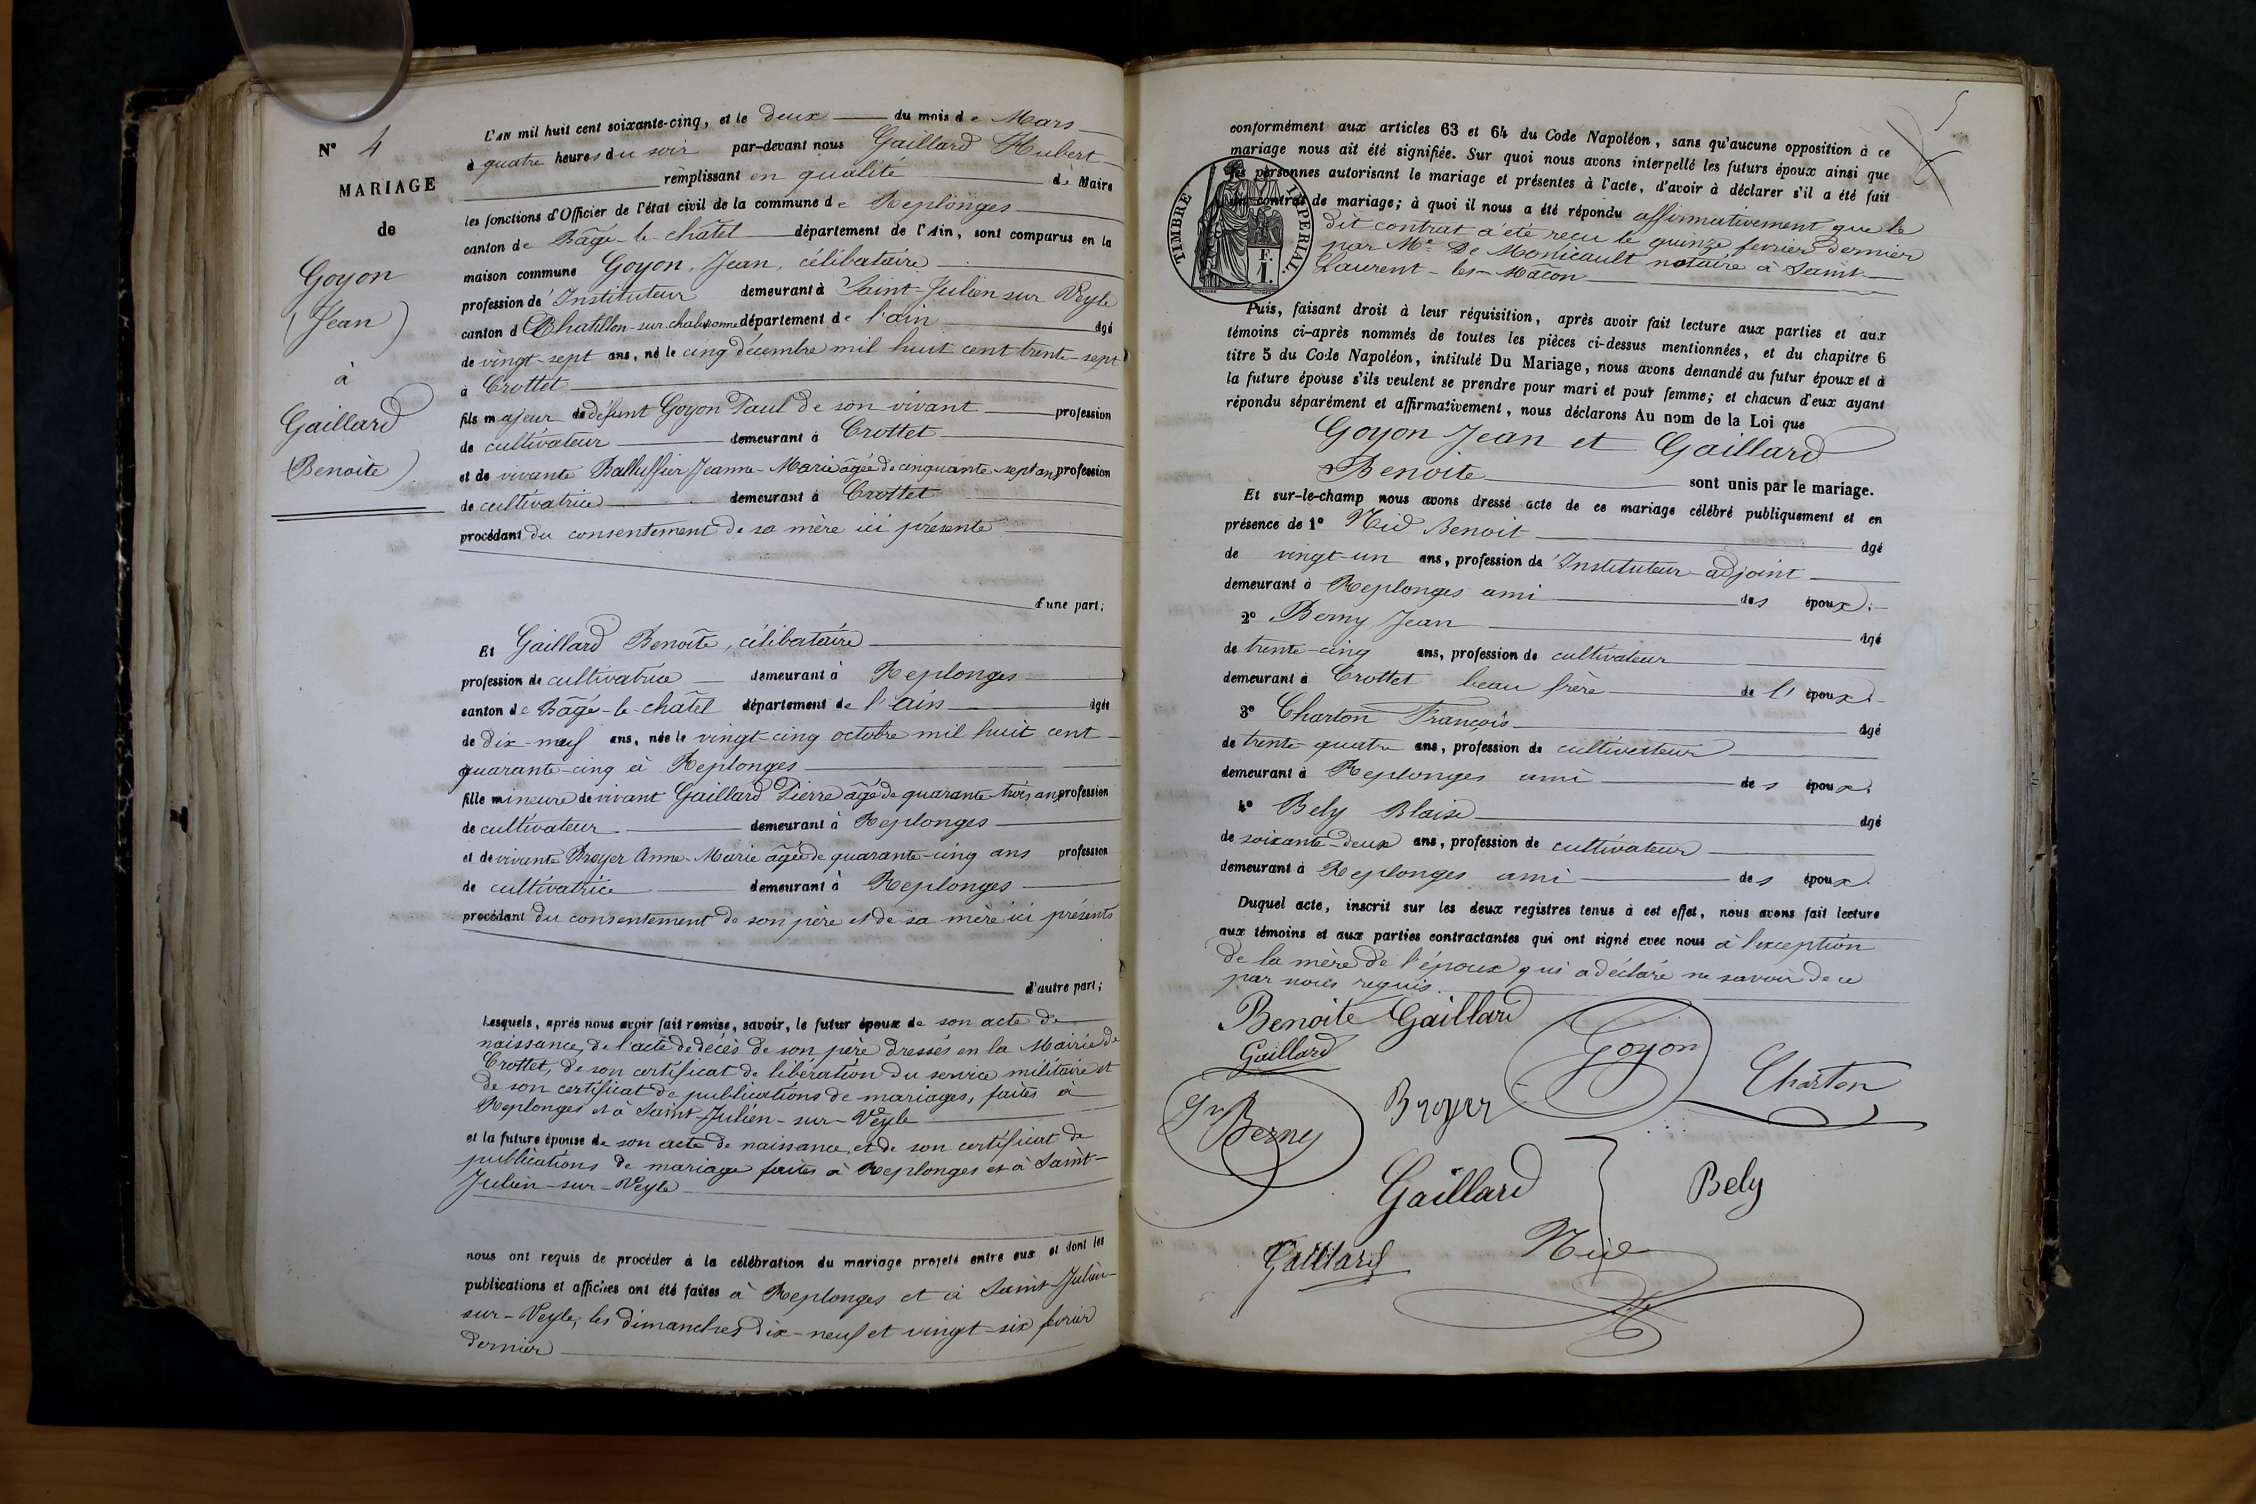 N° 4
MARIAGE
de
Goyon
(Jean)
à
Gaillard
(Benoite).
L'AN mil huit cent soixante-cinq, et le deux du mois de Mars
à quatre heures du soir par-devant nous Gaillard Hubert
remplissant en qualité de Maire
les fonctions d'Officier de l'état civil de la commune de Replonges
canton de Bâgé-le-châtel département de l'Ain, sont comparus en la
maison commune Goyon, Jean, célibataire
profession d'Instituteur demeurant à Saint-Julien sur Veyle
canton de Chatillon-sur-chalaronne département de l'ain âgé
de vingt-sept ans, né le cinq décembre mil huit cent trente-sept
à Crottet
fils majeur de défunt Goyon Paul de son vivant profession
de cultivateur demeurant à Crottet
et de vivante Balluffier Jeanne-Marie âgée de cinquante-sept ans profession
de cultivatrice demeurant à Crottet
procédant du consentement de sa mère ici présente
d'une part;
Et Gaillard Benoîte, célibataire
profession de cultivatrice demeurant à Replonges
canton de Bâgé-le-châtel département de l'ain âgée
de dix-neuf ans, née le vingt-cinq octobre mil huit cent
quarante-cinq à Replonges
fille mineure de vivant Gaillard Pierre âgé de quarante-trois ans profession
de cultivateur demeurant à Replonges
et de vivante Broyer Anne-Marie âgée de quarante-cinq ans profession
de cultivatrice demeurant à Replonges
procédant du consentement de son père et de sa mère ici présents
d'autre part;
Lesquels, après nous avoir fait remise, savoir, le futur époux de son acte de
naissance, de l'acte de décès de son père dressés en la Mairie de
Crottet, de son certificat de libération du service militaire et
de son certificat de publications de mariages, faites à
Replonges et à Saint-Julien-sur-Veyle
et la future épouse de son acte de naissance, et de son certificat de
publications de mariage faites à Replonges et à Saint-
Julien-sur-Veyle
nous ont requis de procéder à la célébration du mariage projeté entre eux et dont les
publications et affiches ont été faites à Replonges et à Saint-Julien-
sur-Veyle, les dimanches dix-neuf et vingt-six février
dernier
5
conformément aux articles 63 et 64 du Code Napoléon, sans qu'aucune opposition à ce
mariage nous ait été signifiée. Sur quoi nous avons interpellé les futurs époux ainsi que
les personnes autorisant le mariage et présentes à l'acte, d'avoir à déclarer s'il a été fait
un contrat de mariage; à quoi il nous a été répondu affirmativement que le
dit contrat a été reçu le quinze février dernier
par Me De Monicault notaire à Saint-
Laurent-les-Mâcon
TIMBRE IMPERIAL.
F.
1.
Puis, faisant droit à leur réquisition, après avoir fait lecture aux parties et aux
témoins ci-après nommés de toutes les pièces ci-dessus mentionnées, et du chapitre 6
titre 5 du Code Napoléon, intitulé Du Mariage, nous avons demandé au futur époux et à
la future épouse s'ils veulent se prendre pour mari et pour femme; et chacun d'eux ayant
répondu séparément et affirmativement, nous déclarons Au nom de la Loi que
Goyon Jean et Gaillard
Benoite sont unis par le mariage.
Et sur-le-champ nous avons dressé acte de ce mariage célébré publiquement et en
présence de 1° Nid Benoit âgé
de vingt-un ans, profession d'Instituteur-adjoint
demeurant à Replonges ami des époux.
2° Berny Jean âgé
de trente-cinq ans, profession de cultivateur
demeurant à Crottet beau frère de l'époux.
3° Charton François âgé
de trente quatre ans, profession de cultivateur
demeurant à Replonges ami des époux.
4° Bely Blaise âgé
de soixante-deux ans, profession de cultivateur
demeurant à Replonges ami des époux.
Duquel acte, inscrit sur les deux registres tenus à cet effet, nous avons fait lecture
aux témoins et aux parties contractantes qui ont signé avec nous à l'exception
de la mère de l'époux qui a déclaré ne savoir de ce
par nous requis.
Benoite Gaillard
Gaillard
Goyon
Charton
Berny
Broyer
Gaillard
Bely
Gaillard
Nid